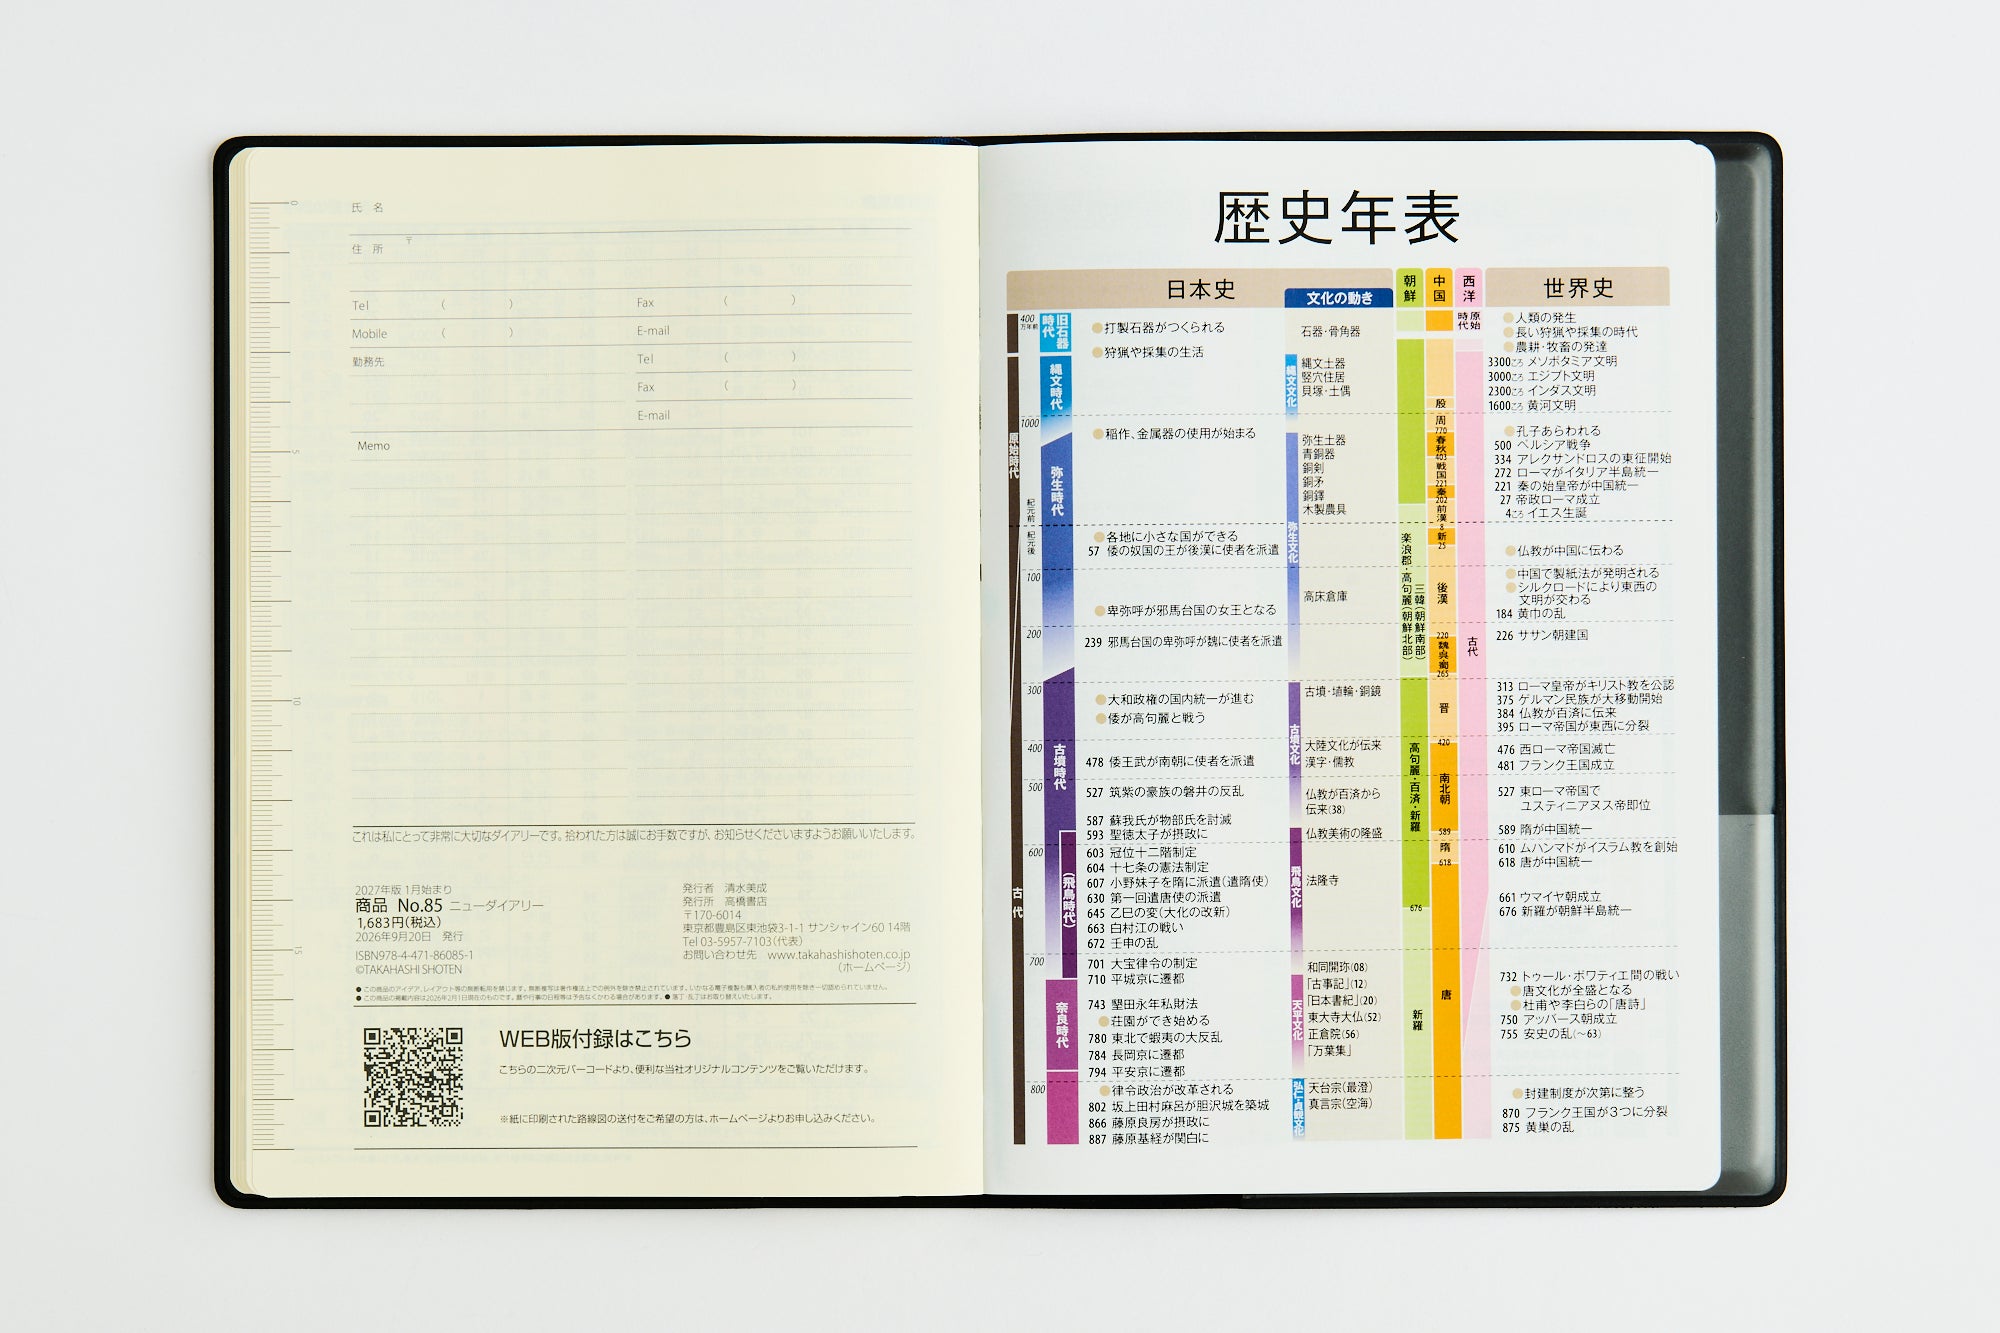 氏 名
住 所 〒
Tel ( ) Fax ( )
Mobile ( ) E-mail
勤務先 Tel ( )
Fax ( )
E-mail
Memo
これは私にとって非常に大切なダイアリーです。拾われた方は誠にお手数ですが、お知らせくださいますようお願いいたします。
2027年版 1月始まり
商品 No.85 ニューダイアリー
1,683円(税込)
2026年9月20日 発行
ISBN978-4-471-86085-1
©TAKAHASHI SHOTEN
発行者 清水美成
発行所 高橋書店
〒170-6014
東京都豊島区東池袋3-1-1 サンシャイン60 14階
Tel 03-5957-7103(代表)
お問い合わせ先 www.takahashishoten.co.jp
(ホームページ)
●この商品のアイデア、レイアウト等の無断転用を禁じます。無断複写は著作権法上での例外を除き禁止されています。いかなる電子複製も購入者の私的使用を除き一切認められていません。
●この商品の掲載内容は2026年2月1日現在のものです。暦や行事の日程等は予告なくかわる場合があります。●落丁・乱丁はお取り替えいたします。
WEB版付録はこちら
こちらの二次元バーコードより、便利な当社オリジナルコンテンツをご覧いただけます。
※紙に印刷された路線図の送付をご希望の方は、ホームページよりお申し込みください。
0
5
10
15
歴史年表
日本史
文化の動き
朝鮮
中国
西洋
世界史
400万年前
1000
紀元前
紀元後
100
200
300
400
500
600
700
800
原始時代
古代
旧石器時代
縄文時代
弥生時代
古墳時代
(飛鳥時代)
奈良時代
●打製石器がつくられる
●狩猟や採集の生活
●稲作、金属器の使用が始まる
●各地に小さな国ができる
57 倭の奴国の王が後漢に使者を派遣
●卑弥呼が邪馬台国の女王となる
239 邪馬台国の卑弥呼が魏に使者を派遣
●大和政権の国内統一が進む
●倭が高句麗と戦う
478 倭王武が南朝に使者を派遣
527 筑紫の豪族の磐井の反乱
587 蘇我氏が物部氏を討滅
593 聖徳太子が摂政に
603 冠位十二階制定
604 十七条の憲法制定
607 小野妹子を隋に派遣(遣隋使)
630 第一回遣唐使の派遣
645 乙巳の変(大化の改新)
663 白村江の戦い
672 壬申の乱
701 大宝律令の制定
710 平城京に遷都
743 墾田永年私財法
●荘園ができ始める
780 東北で蝦夷の大反乱
784 長岡京に遷都
794 平安京に遷都
●律令政治が改革される
802 坂上田村麻呂が胆沢城を築城
866 藤原良房が摂政に
887 藤原基経が関白に
縄文文化
弥生文化
古墳文化
飛鳥文化
天平文化
弘仁・貞観文化
石器・骨角器
縄文土器
竪穴住居
貝塚・土偶
弥生土器
青銅器
銅剣
銅矛
銅鐸
木製農具
高床倉庫
古墳・埴輪・銅鏡
大陸文化が伝来
漢字・儒教
仏教が百済から
伝来(38)
仏教美術の隆盛
法隆寺
和同開珎(08)
「古事記」(12)
「日本書紀」(20)
東大寺大仏(52)
正倉院(56)
「万葉集」
天台宗(最澄)
真言宗(空海)
楽浪郡・高句麗(朝鮮北部)
三韓(朝鮮南部)
高句麗・百済・新羅
676
新羅
殷
周
770
春秋
403
戦国
221
秦
202
前漢
8
新
25
後漢
220
魏呉蜀
265
晋
420
南北朝
589
隋
618
唐
原始時代
古代
●人類の発生
●長い狩猟や採集の時代
●農耕・牧畜の発達
3300ころ メソポタミア文明
3000ころ エジプト文明
2300ころ インダス文明
1600ころ 黄河文明
●孔子あらわれる
500 ペルシア戦争
334 アレクサンドロスの東征開始
272 ローマがイタリア半島統一
221 秦の始皇帝が中国統一
27 帝政ローマ成立
4ころ イエス生誕
●仏教が中国に伝わる
●中国で製紙法が発明される
●シルクロードにより東西の
文明が交わる
184 黄巾の乱
226 ササン朝建国
313 ローマ皇帝がキリスト教を公認
375 ゲルマン民族が大移動開始
384 仏教が百済に伝来
395 ローマ帝国が東西に分裂
476 西ローマ帝国滅亡
481 フランク王国成立
527 東ローマ帝国で
ユスティニアヌス帝即位
589 隋が中国統一
610 ムハンマドがイスラム教を創始
618 唐が中国統一
661 ウマイヤ朝成立
676 新羅が朝鮮半島統一
732 トゥール・ポワティエ間の戦い
●唐文化が全盛となる
●杜甫や李白らの「唐詩」
750 アッバース朝成立
755 安史の乱(〜63)
●封建制度が次第に整う
870 フランク王国が3つに分裂
875 黄巣の乱